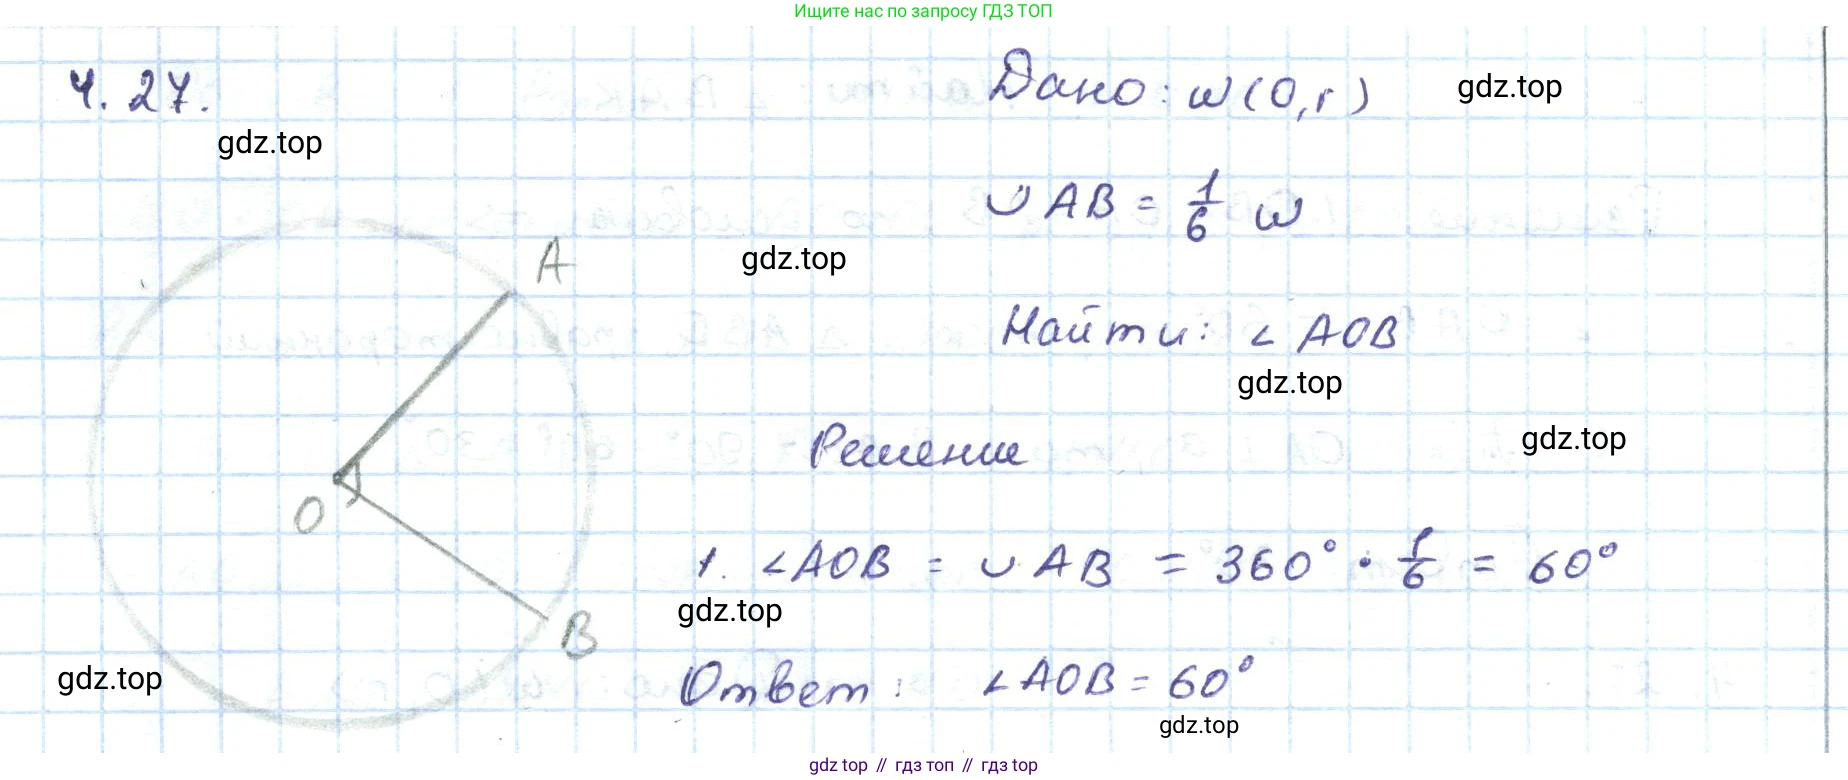 Ищите нас по запросу ГДЗ ТОП
4.27.
Дано: ω(O,r)
gdz.top
gdz.top
∪AB = 1/6 ω
A
gdz.top
Найти: ∠AOB
gdz.top
Решение
gdz.top
O
1. ∠AOB = ∪AB = 360° · 1/6 = 60°
gdz.top
B
gdz.top
Ответ: ∠AOB = 60°
gdz.top
gdz top // гдз топ // gdz.top